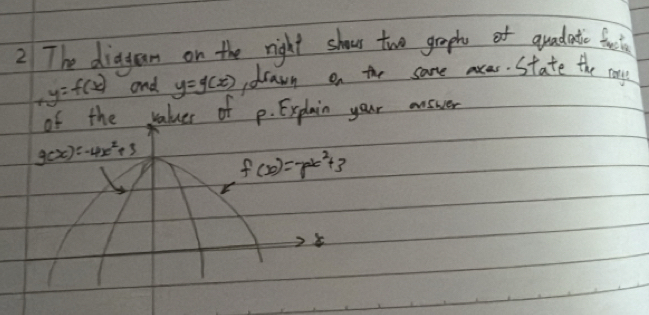 2 The diagram on the right shows two graphs of quadratic function
, y=f(x) and y=g(x), drawn on the same axes. State the range
of the values of p. Explain your answer
g(x)=-4x²+3
f(x)=-px²+3
x